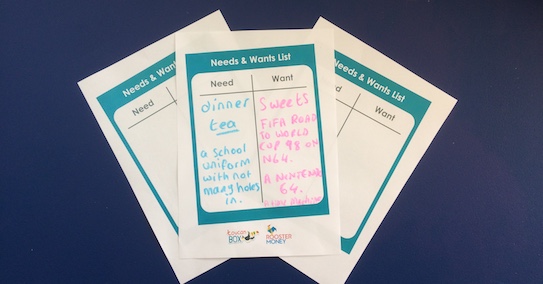 Needs & Wants List
Need
Needs & Wants List
Need Want
dinner
tea
a school
uniform
with not
many holes
in.
Sweets
FIFA ROAD
TO WORLD
CUP 98 ON
N64.
A NINTENDO
64.
toucan
BOX
ROOSTER
MONEY
Needs & Wants List
Want